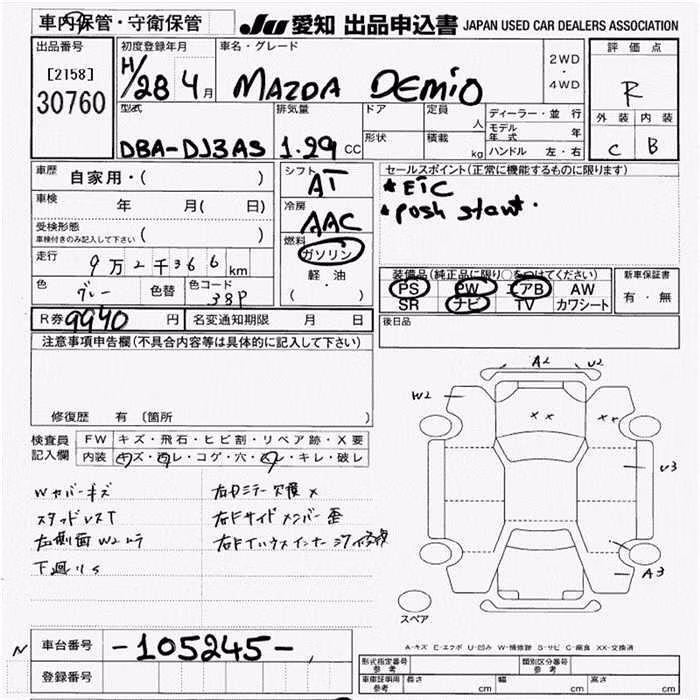 車内保管・守衛保管
JU 愛知 出品申込書 JAPAN USED CAR DEALERS ASSOCIATION
出品番号
[2158]
30760
初度登録年月
H/28 4月
車名・グレード
MAZDA DEMiO
2WD
・
4WD
評価点
R
外装 内装
C B
型式
DBA-DJ3AS
排気量
1.29 CC
ドア
形状
定員
人
積載
kg
ディーラー・並行
モデル年式 年
ハンドル 左・右
車歴 自家用・( )
車検 年 月( 日)
受検形態
車検付きのみ記入して下さい ( )
走行 9万2千366 km
色 グレー 色替 色コード 38P
シフト
AT
冷房
AAC
燃料
ガソリン
軽・油
( )
セールスポイント(正常に機能するものに限ります)
★ETC
★Push start.
装備品(純正品に限り○をつけてください)
PS PW エアB AW
SR ナビ TV カワシート
新車保証書
有・無
R券 9940 円 名変通知期限 月 日
後日品
注意事項申告欄(不具合内容等は具体的に記入して下さい)
修復歴 有 〔箇所
検査員
記入欄
FW キズ・飛石・ヒビ割・リペア跡・X要
内装 キズ・汚レ・コゲ・穴・スレ・キレ・破レ
Wカバーキズ
左側面W2
下廻りS
右Dミラー欠損 X
右Fサイドメンバー歪
A2 U2
W2 XX XX
U3
A3
スペア
A-キズ E-エクボ U-凹み W-補修跡 S-サビ C-腐食 XX-交換済
N
車台番号 -105245-
登録番号
形式指定番号
参考
類別区分番号
参考
車庫証明用
参考
長さ cm 幅 cm 高さ cm